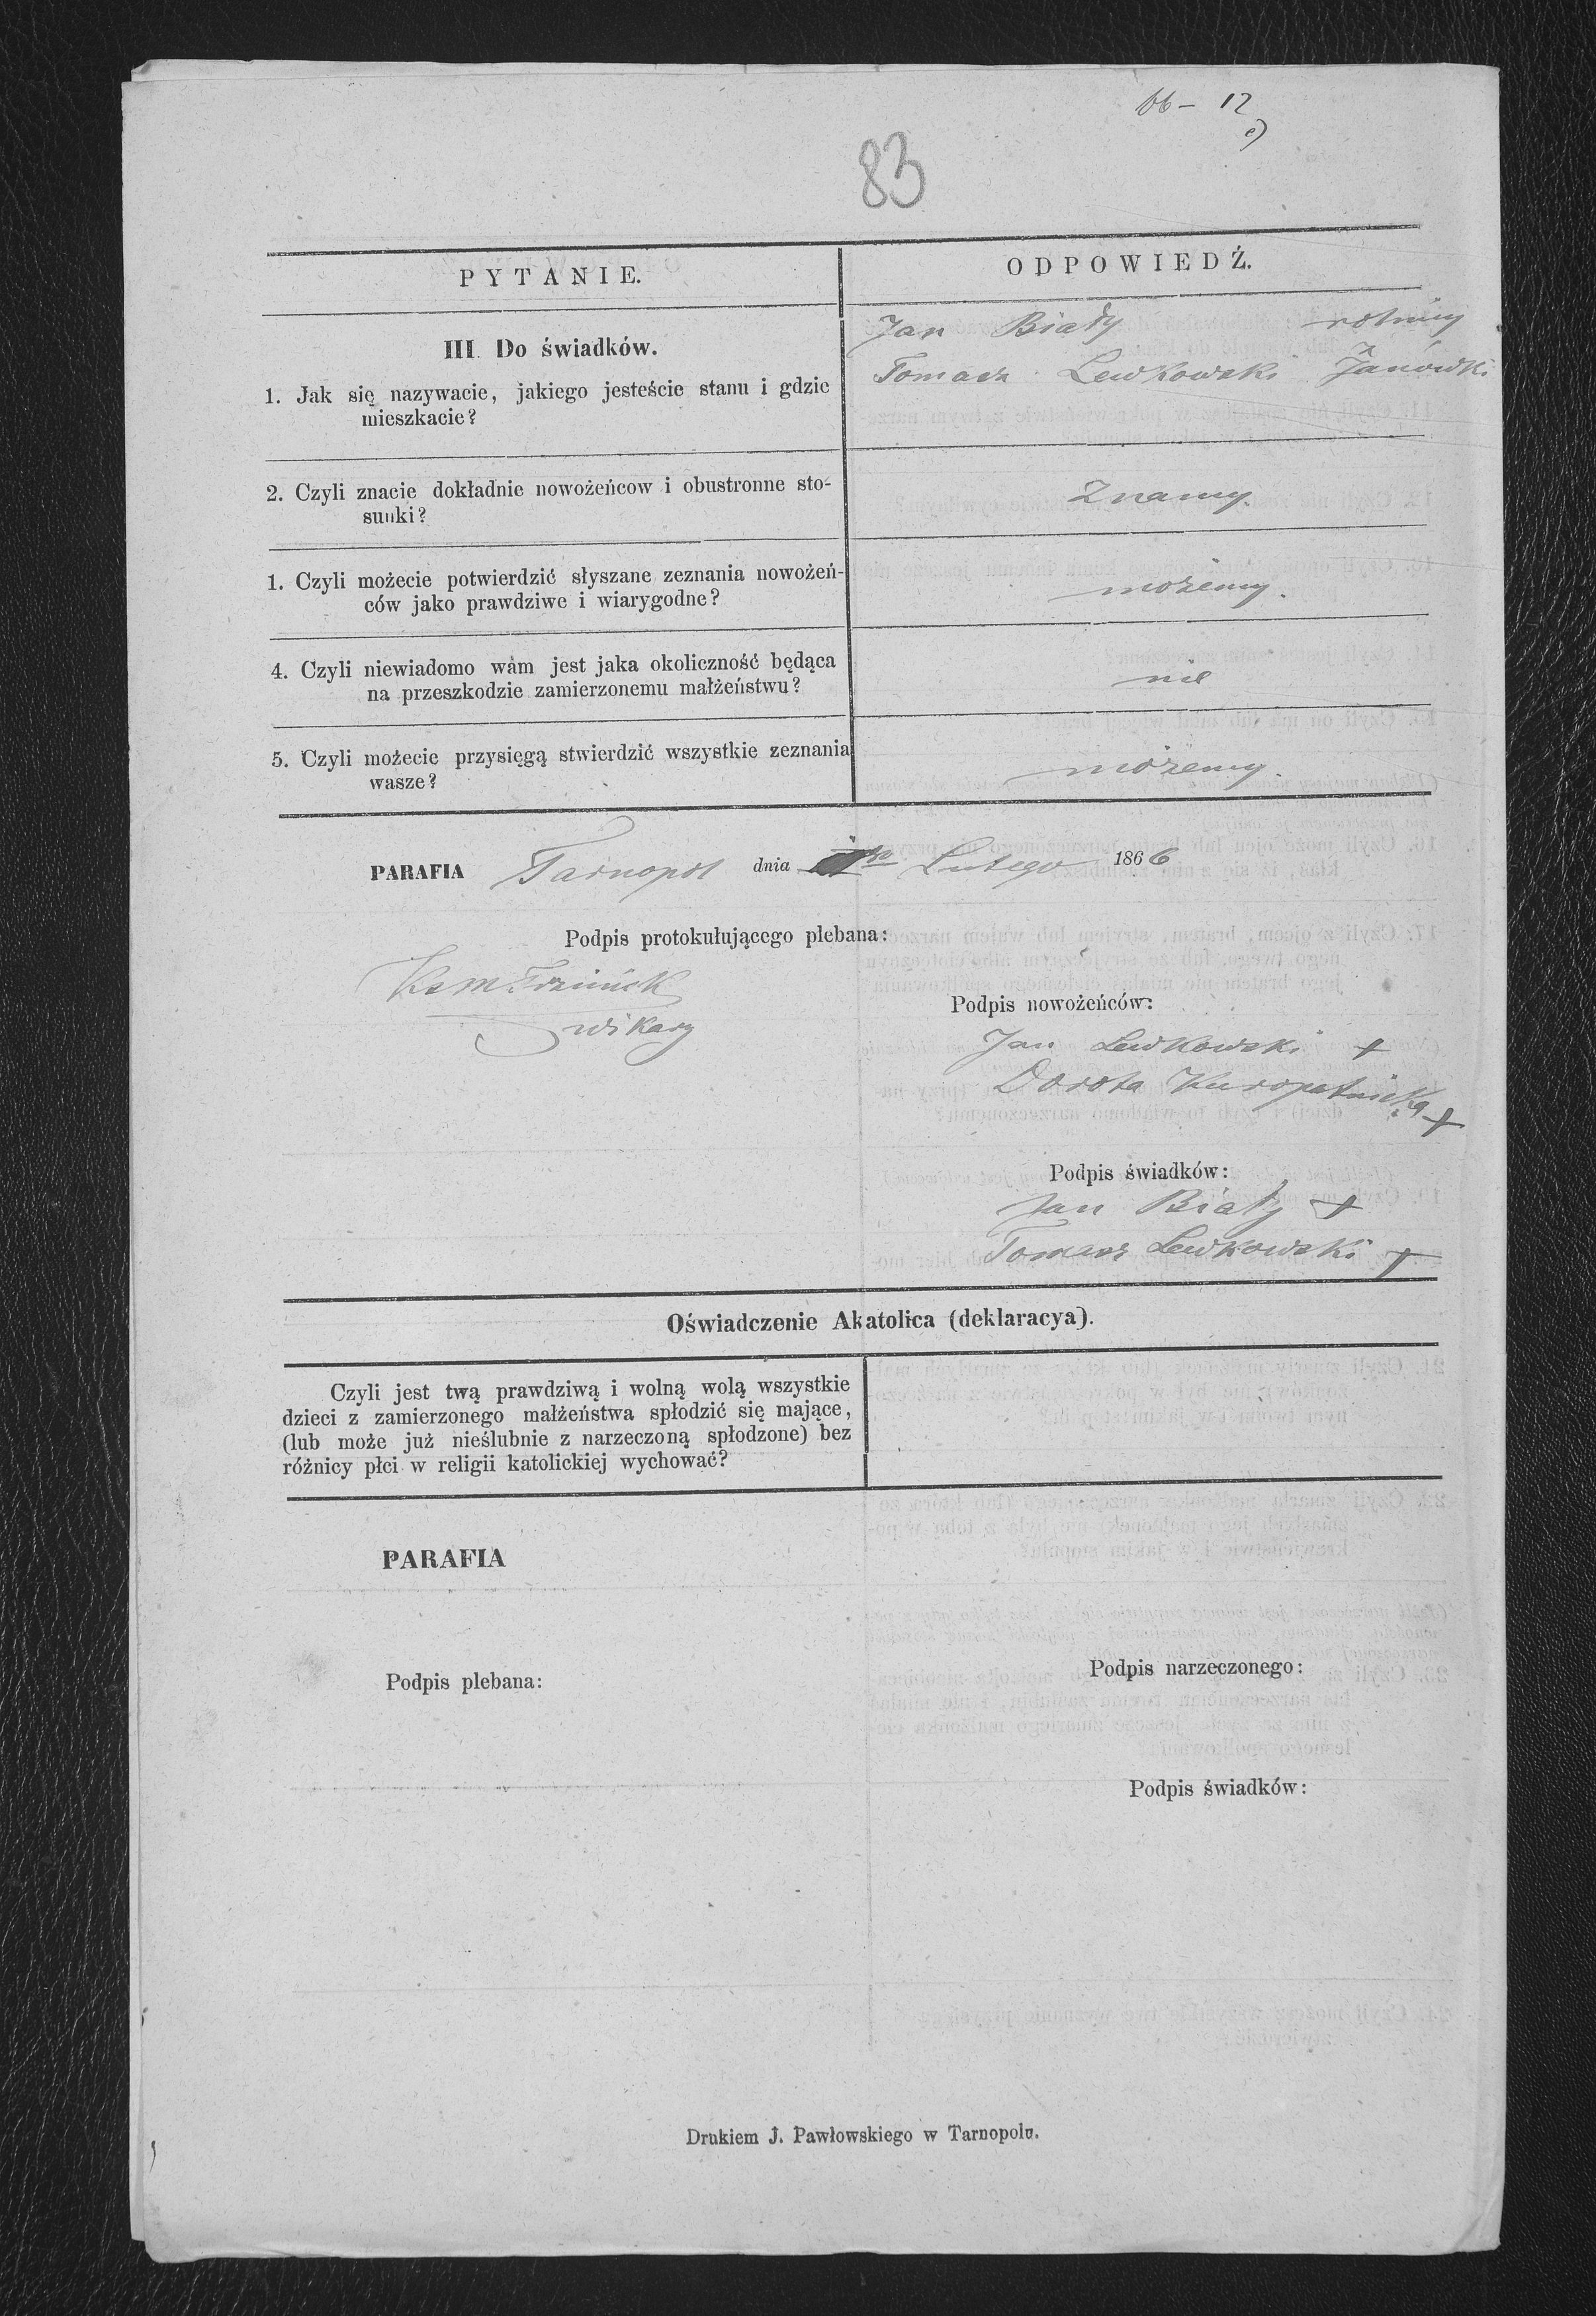 66 – 12
e)
83
PYTANIE.
ODPOWIEDŹ.
III. Do świadków.
1. Jak się nazywacie, jakiego jesteście stanu i gdzie
mieszkacie?
Jan Biały rolnicy
Tomasz Lewkowski z Janówki
2. Czyli znacie dokładnie nowożeńcow i obustronne sto-
sunki?
Znamy.
1. Czyli możecie potwierdzić słyszane zeznania nowożeń-
ców jako prawdziwe i wiarygodne?
możemy.
4. Czyli niewiadomo wam jest jaka okoliczność będąca
na przeszkodzie zamierzonemu małżeństwu?
nie
5. Czyli możecie przysięgą stwierdzić wszystkie zeznania
wasze?
możemy.
PARAFIA Tarnopol dnia Lutego 1866
Podpis protokułującego plebana:
wikary
Podpis nowożeńców:
Jan Lewkowski +
Dorota Kuropatnicka +
Podpis świadków:
Jan Biały +
Tomasz Lewkowski +
Oświadczenie Akatolica (deklaracya).
Czyli jest twą prawdziwą i wolną wolą wszystkie
dzieci z zamierzonego małżeństwa spłodzić się mające,
(lub może już nieślubnie z narzeczoną spłodzone) bez
różnicy płci w religii katolickiej wychować?
PARAFIA
Podpis plebana:
Podpis narzeczonego:
Podpis świadków:
Drukiem J. Pawłowskiego w Tarnopolu.